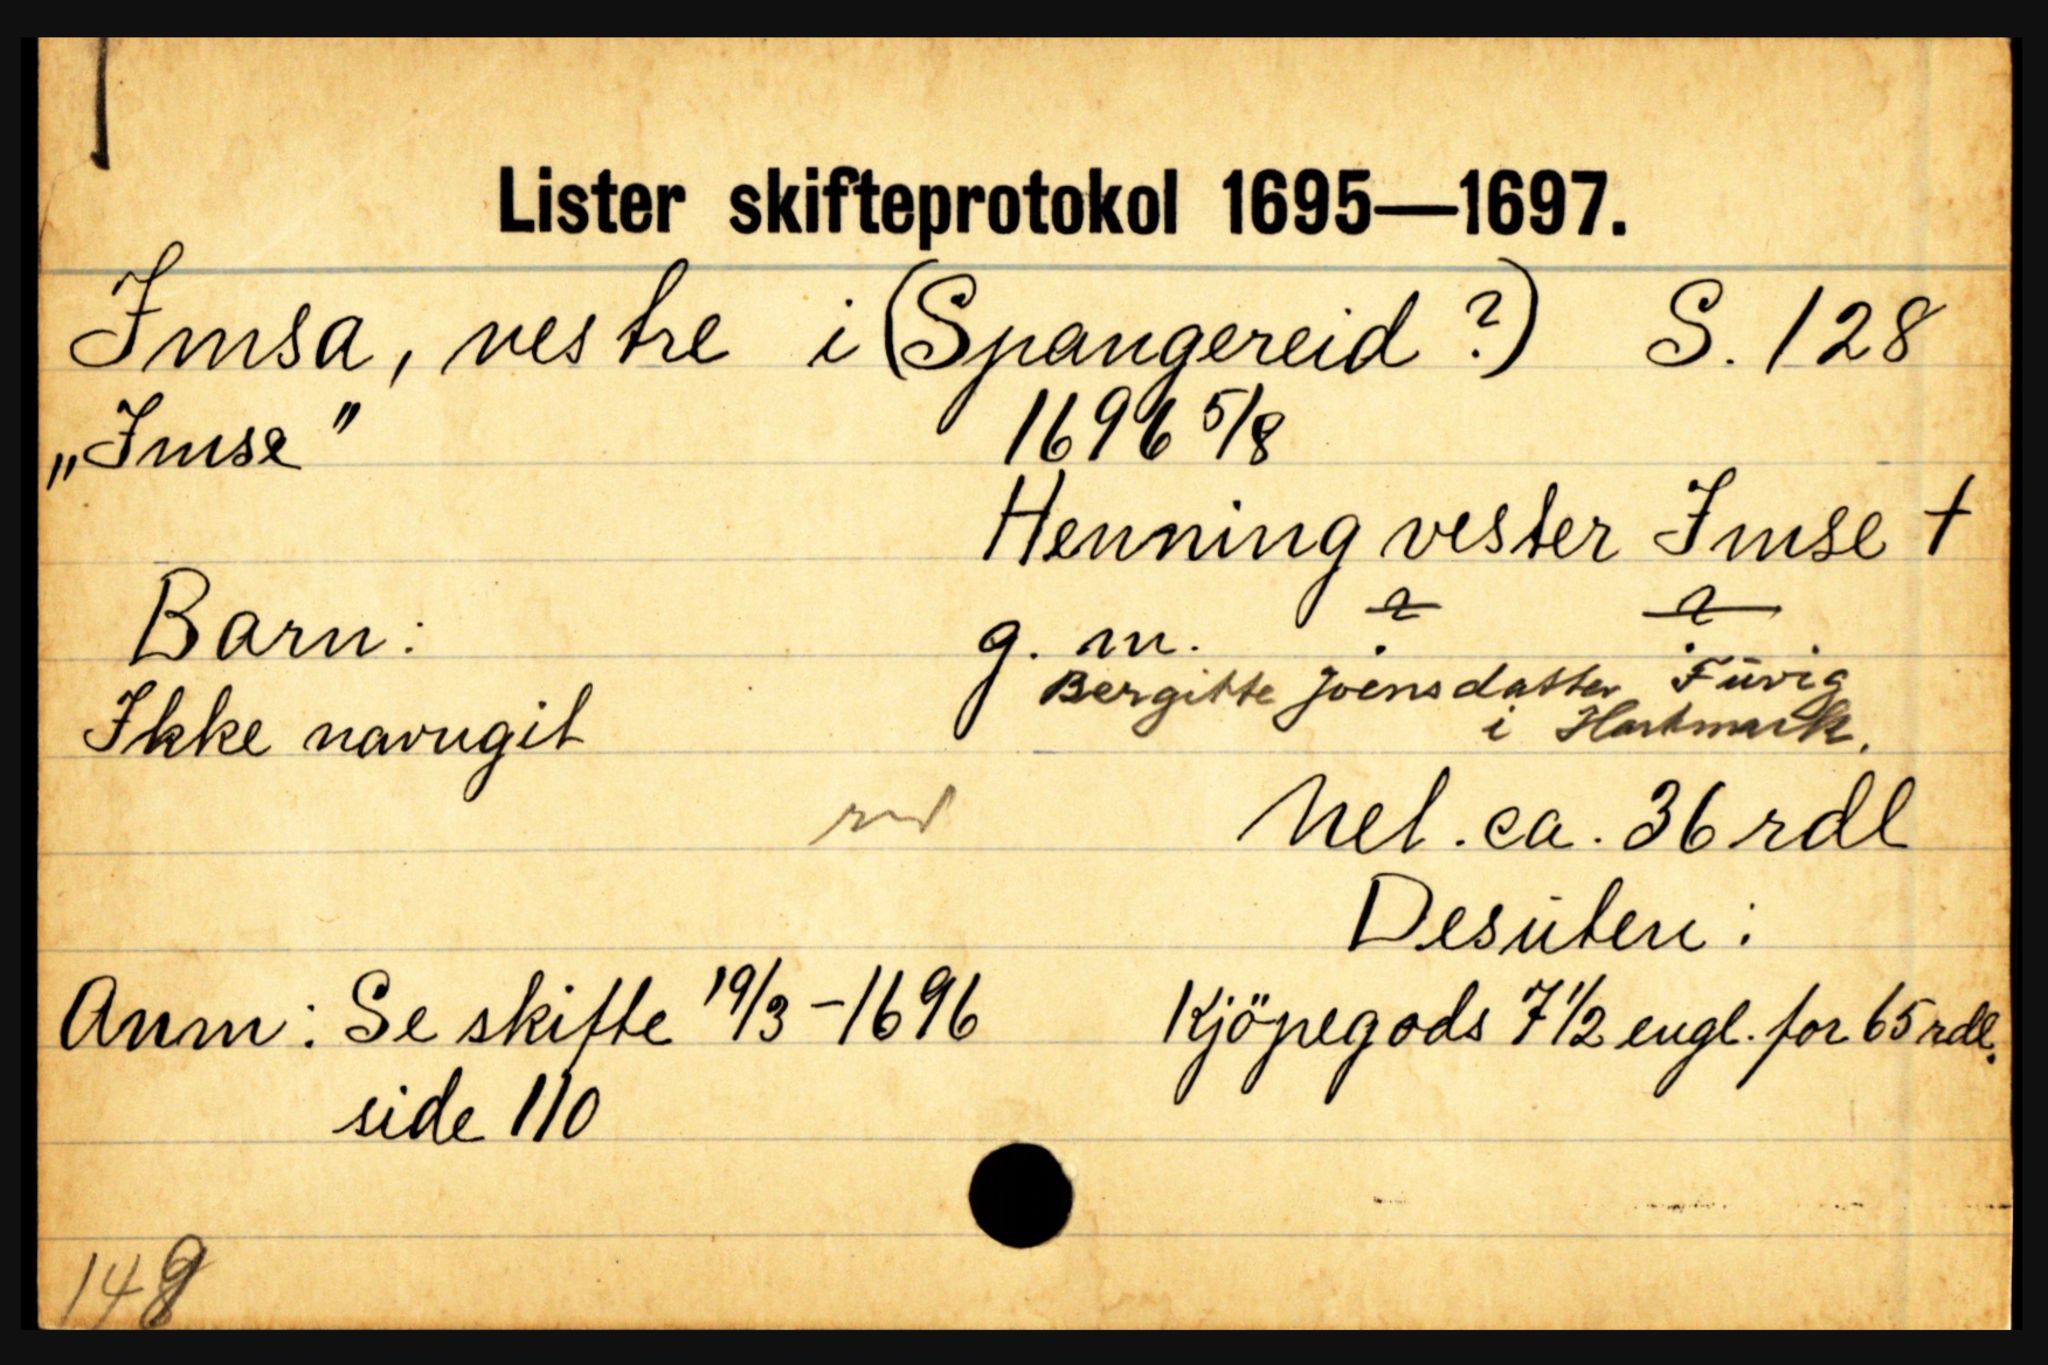 Lister skifteprotokol 1695—1697.
Imsa, vestre i (Spangereid ?) S. 128
„Imse" 1696 5/8
Henning vester Imse +
Barn: g. m. ? ?
Bergitte Joensdatter Füvig
i Hartmark.
Ikke navngit
Nel. ca. 36 rdl
Desüten:
Anm: Se skifte 19/3 - 1696 Kjöpegods 7 1/2 engl. for 65 rdl.
side 110